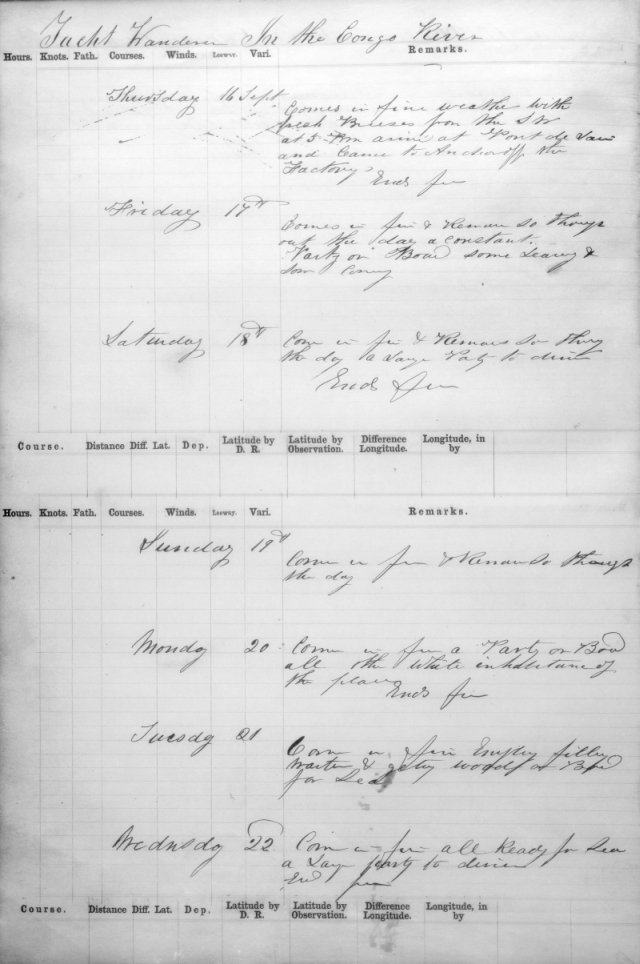 Yacht Wanderer In the Congo River
Hours. Knots. Fath. Courses. Winds. Leeway. Vari. Remarks.
Thursday 16 Sept Comes in fine weather with
fresh Breeses from the SW
at 5 Pm arive at Pont de
and Came to Anchor off the
Factory
Ends fin
Friday 17th Comes in fin & Remans so through
out the day a constant
Party on Board some Leaving &
som Coming
Saturday 18th Come in fin & Remans so throug
the day a Large Party to dinn
Ends fin
Course. Distance Diff. Lat. Dep. Latitude by D. R. Latitude by Observation. Difference Longitude. Longitude, in by
Hours. Knots. Fath. Courses. Winds. Leeway. Vari. Remarks.
Sunday 19th Come in fin & Remans so through
the day
Monday 20 Come in fin a Party on Boad
all the White inhabitanc of
the place
Ends fin
Tuesdy 21 Come in fine Empty filling
water & geting wood on Bord
for Sea
Wednsdy 22 Come in fin all Ready for Sea
a Large party to dinner
End fin
Course. Distance Diff. Lat. Dep. Latitude by D. R. Latitude by Observation. Difference Longitude. Longitude, in by